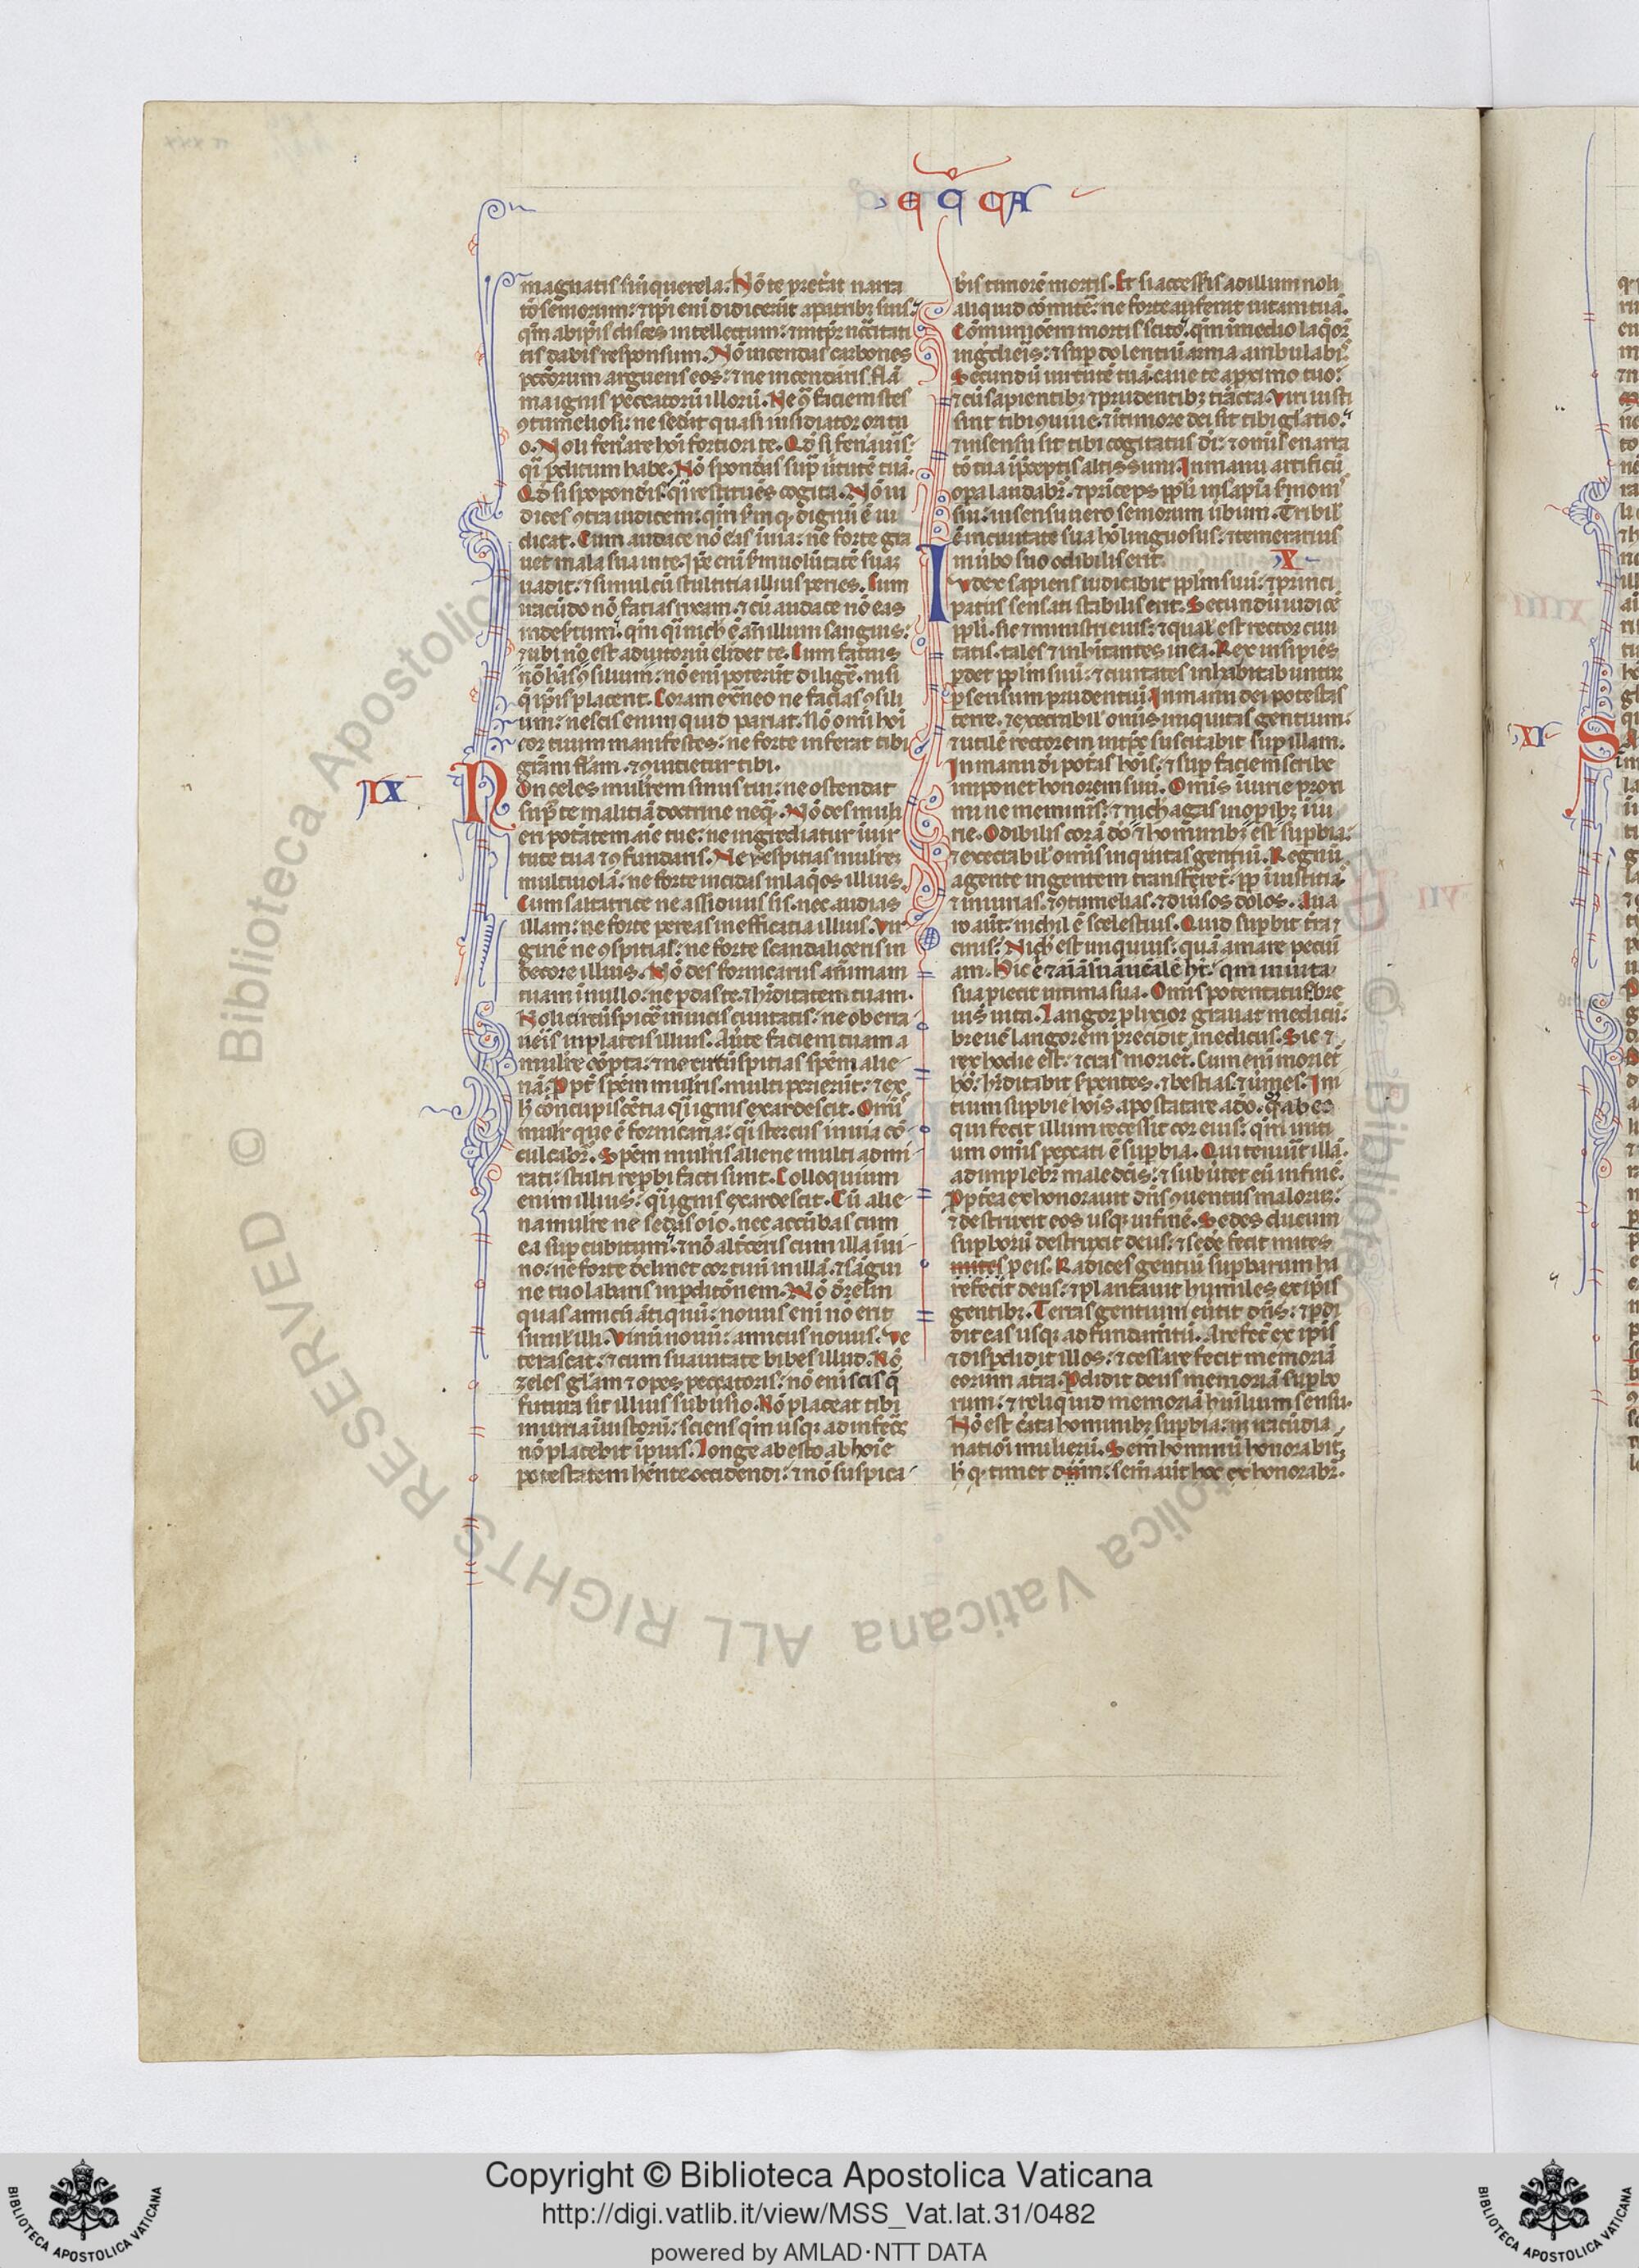 ECCA
magnatis sin̄ querela. Nō te preteat narra
tō seniorum: ip̄i eni didicerūt a patribꝫ suis.
qm̄ ab ip̄is disces intellectum: ⁊ in tp̄r nc̄citati
tis dabis responsum. Nō incendas carbones
pctōrum arguens eos: ⁊ ne incendaris flā
ma ignis peccatorū illorū. Ne ꝯ̄ faciem stes
ꝯtumeliosi: ne sedeat quasi insidiator ori tu
o. Noli fen̄are hoi fortiori te. Qd̄ si fenauis:
q̄i ꝑditum habe. Nō spondeas sup̄ uirtutē tuā.
Qd̄ si spopondis q̄i restituēs cogita. Nō iu
dices ꝯtra iudicem: qm̄ sm̄ q̄ dignū ē iu
dicat. Cum audace nō eas in uia: ne forte gra
uet mala sua in te. Ip̄e eni sm̄ uolūtatē suaꝫ
uadit: ⁊ simul cū stultitia illius peries. Cum
iracūdo nō facias rixam. ⁊ cū audace nō eas
in desertum. qm̄ q̄i nich̄ ē an̄ illum sanguis:
⁊ ubi nō est adiutoriū elidet te. Cum fatuis
nō h̄as ꝯsilium: nō eni poterūt diligē. nisi
q̄ ip̄is placent. Coram ext̄neo ne facias ꝯsili
um: nescis enim quid pariat. Nō omi hoi
cor tuum manifestes: ne forte inferat tibi
gr̄am flām. ⁊ ꝯuitietur tibi.
IX
Non celes mulirem sinus tui: ne ostendat
sup̄ te malitiā doctrine neq̄. Nō des muli
eri potātem aīe tue: ne ingrediatur in uir
tute tua ⁊ ꝯfundaris. Ne respicias mulireꝫ
multiuolā: ne forte incidas in laq̄os illius.
Cum saltatrice ne assiduus sis. nec audias
illam: ne forte pereas in efficatia illius. Vir
ginē ne ꝯspicias: ne forte scandaliceris in
decore illius. Nō des fornicariis an̄imam
tuam in nullo: ne ꝑdas te. ⁊ h̄ditatem tuam.
Noli circūspice in uicis ciuitatis: ne oberra
uēis in plateis illius. Aūte faciem tuam a
muliēe cōpta: ⁊ ne circūspicias spēm alie
nā. Ppt̄ spēm muliris. multi perierūt: ⁊ ex
h̄ concupiscētia q̄i ignis exardescit. Omīs
mulir que ē fornicaria: q̄i stercus in uia cō
culcabr̄. Spēm muliris aliene multi admi
rati: stulti rep̄bi facti sunt. Colloquium
enim illius: q̄i ignis exardescit. Cū alie
na muliēe ne sedeas oīo. nec accūbas cum
ea sup̄ cubitum. ⁊ nō alt̄ceris cum illa in ui
no: ne forte declinet cor tuū in illā. ⁊ sāgui
ne tuo labaris in ꝑditōnem. Nō d̄relin
quas amicū ātiquū: nouus eni nō erit
simil̄ illi. Vinū nouū: amicus nouus. Ve
terascat: ⁊ cum suauitate bibes illud. Nō
zeles gl̄am ⁊ opes peccatoris: nō eni scis q̄
futura sit illius subuīsio. Nō placeat tibi
iniuria iniustorū: sciens qm̄ usqꝫ ad inferos
nō placebit ip̄ius. Longe abesto ab hoīe
potestatem h̄ente occidendi: ⁊ nō suspica
b̄is timorē mortis. Et si accessis ad illum noli
aliquid cōmitte: ne forte auferat uitam tuā.
Cōmunioem mortis scito. qm̄ in medio laq̄oꝝ
inḡdieis: ⁊ sup̄ dolentiū arma ambulabis.
Secundū uirtutē tuā caue te a ꝓximo tuo:
⁊ cū sapientibꝫ ⁊ prudentibꝫ tr̄acta. Viri iusti
sint tibi ꝯuiue. ⁊ in timore dei sit tibi gl̄atio.
⁊ in sensu sit tibi cogitatus di: ⁊ omīs enarra
tō tua in p̄ceptis altissimi. In manu artificū
opa laudabr̄. ⁊ pr̄iceps pp̄li in sapīa sermonis
sui: in sensu uero seniorum ūbum. Tribil̄
ē in ciuitate sua hō linguosus: ⁊ temerarius
in ūbo suo odibilis erit.
X
Iudex sapiens iudicabit pp̄lm suū: ⁊ princi
patus sensati stabilis erit. Secundū iudicē
pp̄li. sic ⁊ ministri eius: ⁊ qual̄ est rector ciui
tatis. tales ⁊ inhitantes in ea. Rex insipiēs
ꝑdet pp̄lm suū: ⁊ ciuitates inhabitabuntur
ꝑ sensum prudentiū. In manu dei potestas
terre. ⁊ execrabil̄ omīs iniquitas gentium:
⁊ utilē rectorem in tp̄r suscitabit sup̄ illam.
In manu di potās hois: ⁊ sup̄ faciem scribe
imponet honorem suū. Omīs iniurie ꝓxi
mi ne memineris: ⁊ nich̄ agas in opibꝫ iniu
rie. Odibilis corā dō ⁊ hominibꝫ est supbia:
⁊ execrabil̄ omīs iniquitas gentiū. Regnū
a gente in gentem transferet. ꝓp̄ iniustitiā.
⁊ iniurias. ⁊ ꝯtumelias. ⁊ diuīsos dolos. Aua
ro aūt: nichil ē scelestius. Quid supbit t̄ra ⁊
cinis: Nich̄ est iniquius: quā amare pecuī
am. Hic ē ⁊ aīā suā uēale h̄t. qm̄ in uita
sua ꝓiecit intima sua. Omīs potentatus bre
uis uita. Langor ꝓlixior grauat medicū:
breuē langorem p̄cidit medicus. Sic ⁊
rex hodie est: ⁊ cras moriet̄. Cum eni moriet̄
hō: h̄ditabit serpentes. ⁊ bestias. ⁊ ūmes. Ini
tium supbie hois. apostatare a dō. q̄ ab eo
qui fecit illum recessit cor eius: qm̄ initi
um omīs peccati ē supbia. Qui tenuīt illā.
adimplebr̄ maledcis: ⁊ subūtet eū in finē.
Ppt̄ea exhonorauit dn̄s ꝯuentus maloruꝫ:
⁊ destruxit eos usqꝫ in finē. Sedes ducum
supborū destruxit deus: ⁊ sedē fecit mites
mites ꝑ eis. Radices gentiū supbarum ha
refecit deus: ⁊ plantauit humiles ex ip̄is
gentibꝫ. Terras gentium eūtit dn̄s: ⁊ ꝑdi
dit eas usqꝫ ad fundamtū. Arefec̄ ex ip̄is
⁊ disꝑdidit illos: ⁊ cessare fecit memoriā
eorum a tr̄a. Pdidit deus memoriā supbo
rum: ⁊ reliquid memoriā humilium sensu.
Nō est cāta hominibꝫ supbia: n̄ iracūdia
nationi mulierū. Semen hominū honorabitꝫ
h̄ q̄ timet dm̄: sem̄ aūt hoc exhonorabr̄.
XI
S
Copyright © Biblioteca Apostolica Vaticana
http://digi.vatlib.it/view/MSS_Vat.lat.31/0482
powered by AMLAD·NTT DATA
BIBLIOTECA APOSTOLICA VATICANA
BIBLIOTECA APOSTOLICA VATICANA
© Biblioteca Apostolica Vaticana ALL RIGHTS RESERVED